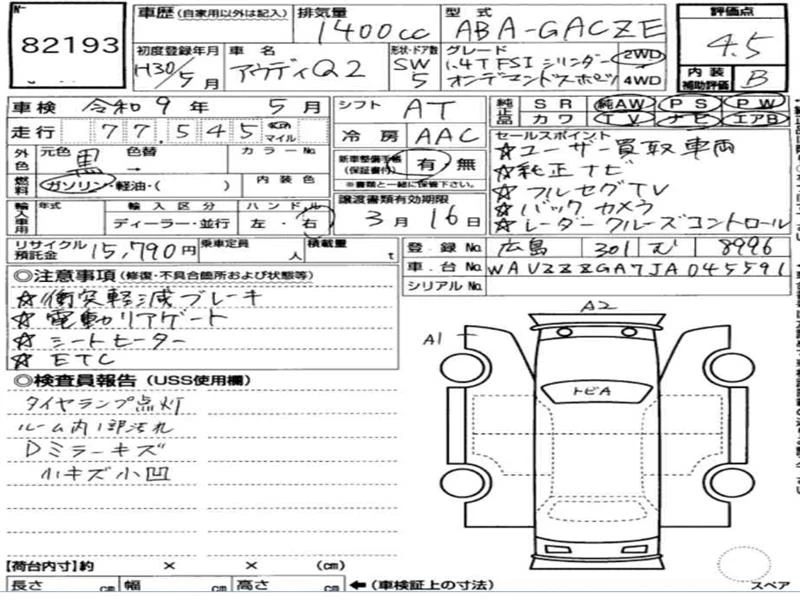 82193
車歴(自家用以外は記入) 排気量 1400cc 型式 ABA-GACZE
初度登録年月 H30/5月 車名 アウディQ2 形状・ドア数 SW 5 グレード 1.4TFSI シリンダー オンデマンドスポーツ 2WD 4WD
評価点 4.5
内装補助評価 B
車検 令和 9年 5月 シフト AT
走行 77,545 km マイル 冷房 AAC
純正品 SR 純AW PS PW
カワ TV ナビ エアB
外色 元色 黒 色替 → カラーNo. 内装色
燃料 ガソリン・軽油・( )
新車整備手帳(保証書付) 有 無
※書類と一緒に保管下さい。
輸入車用 年式 輸入区分 ディーラー・並行 ハンドル 左・右
譲渡書類有効期限 3月 16日
セールスポイント
☆ユーザー買取車両
☆純正ナビ
☆フルセグTV
☆バックカメラ
☆レーダークルーズコントロール
リサイクル預託金 15,790円 乗車定員 人 積載量 t
登録No. 広島 301 む 8996
車台No. WAUZZZGA7JA045591
シリアルNo.
◎注意事項(修復・不具合個所および状態等)
☆衝突軽減ブレーキ
☆電動リアゲート
☆シートヒーター
☆ETC
◎検査員報告(USS使用欄)
タイヤランプ点灯
ルーム内1部汚れ
Dミラーキズ
小キズ小凹
A2
A1
トビA
【荷台内寸】約 × × (cm)
長さ cm 幅 cm 高さ cm ←(車検証上の寸法)
スペア